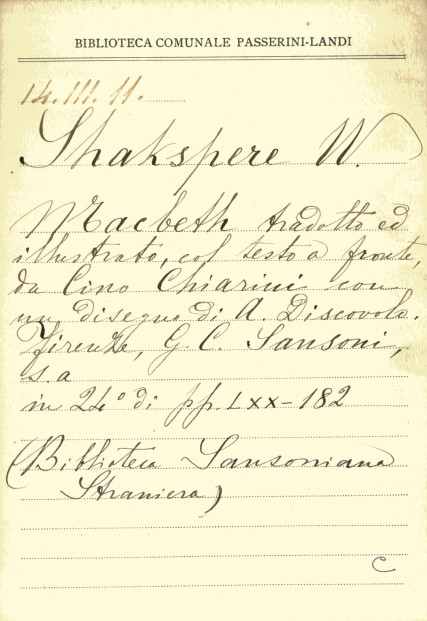 BIBLIOTECA COMUNALE PASSERINI-LANDI
14.III.11.
Shakspere W.
Macbeth tradotto ed
illustrato, col testo a fronte,
da Cino Chiarini con
un disegno di A. Discovolo.
Firenze, G. C. Sansoni,
s. a
in 24° di pp. LXX-182
(Biblioteca Sansoniana
Straniera)
C